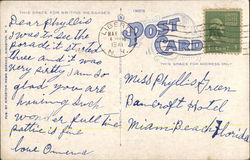 THIS SPACE FOR WRITING MESSAGES
POST
CARD
THIS SPACE FOR ADDRESS ONLY
Dear Phyllis
I was to see the
parade it started
three and it was
very pretty I am so
glad you are
having such
wonderful time
pattie is fine
Love
Miss Phyllis Green
Bancroft Hotel
Miami Beach Florida